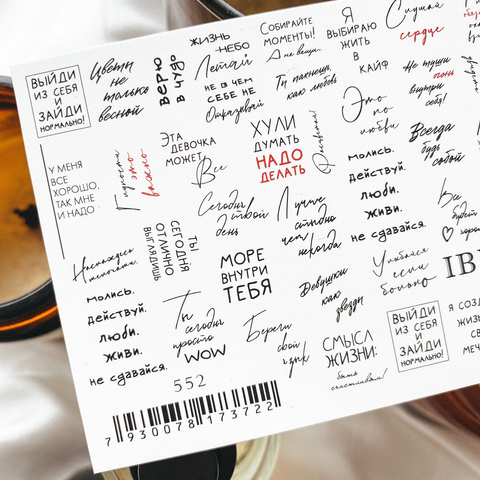 ВЫЙДИ
ИЗ СЕБЯ
И
ЗАЙДИ
НОРМАЛЬНО!
Цветы
не
только
весной
ВЕРЮ
В ЧУДО
ЖИЗНЬ
-НЕБО
Летай
НЕ В ЧЕМ
СЕБЕ НЕ
Отказывай
СОБИРАЙТЕ
МОМЕНТЫ!
А не вещи
Ты пахнешь,
как любовь
Я
ВЫБИРАЮ
ЖИТЬ
В
КАЙФ
Слушай
сердце
Не туши
огонь
внутри
себя!
У МЕНЯ
ВСЕ
ХОРОШО,
ТАК МНЕ
И НАДО
Глупости
это
важно
ЭТА
ДЕВОЧКА
МОЖЕТ
Все
ХУЛИ
ДУМАТЬ
НАДО
ДЕЛАТЬ
Это
по
любви
Всегда
будь
собой
молись.
действуй.
люби.
живи.
не сдавайся.
Насладись
моментом.
ТЫ
СЕГОДНЯ
ОТЛИЧНО
ВЫГЛЯДИШЬ
Сегодня
твой
день
Лучше
стыдно
чем
никогда
Все
будет
хорошо
молись.
действуй.
люби.
живи.
не сдавайся.
МОРЕ
ВНУТРИ
ТЕБЯ
Девушки
как
звезды
Улыбайся
если
больно
IB
Ты
сегодня
просто
WOW
Береги
свой
цик
СМЫСЛ
ЖИЗНИ:
быть
счастливым!
ВЫЙДИ
ИЗ СЕБЯ
И
ЗАЙДИ
НОРМАЛЬНО!
Я СОЗД
ЖИЗНЬ
СВО
МЕЧ
552
7 930078 173722